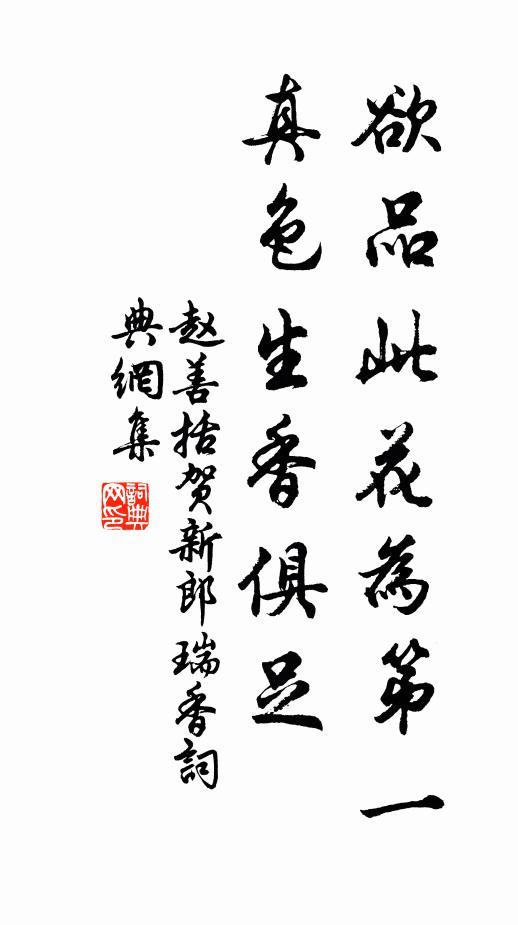 欲品此花為第一
真色生香俱足
赵善括贺新郎瑞香詞
典網集
詞典
网印